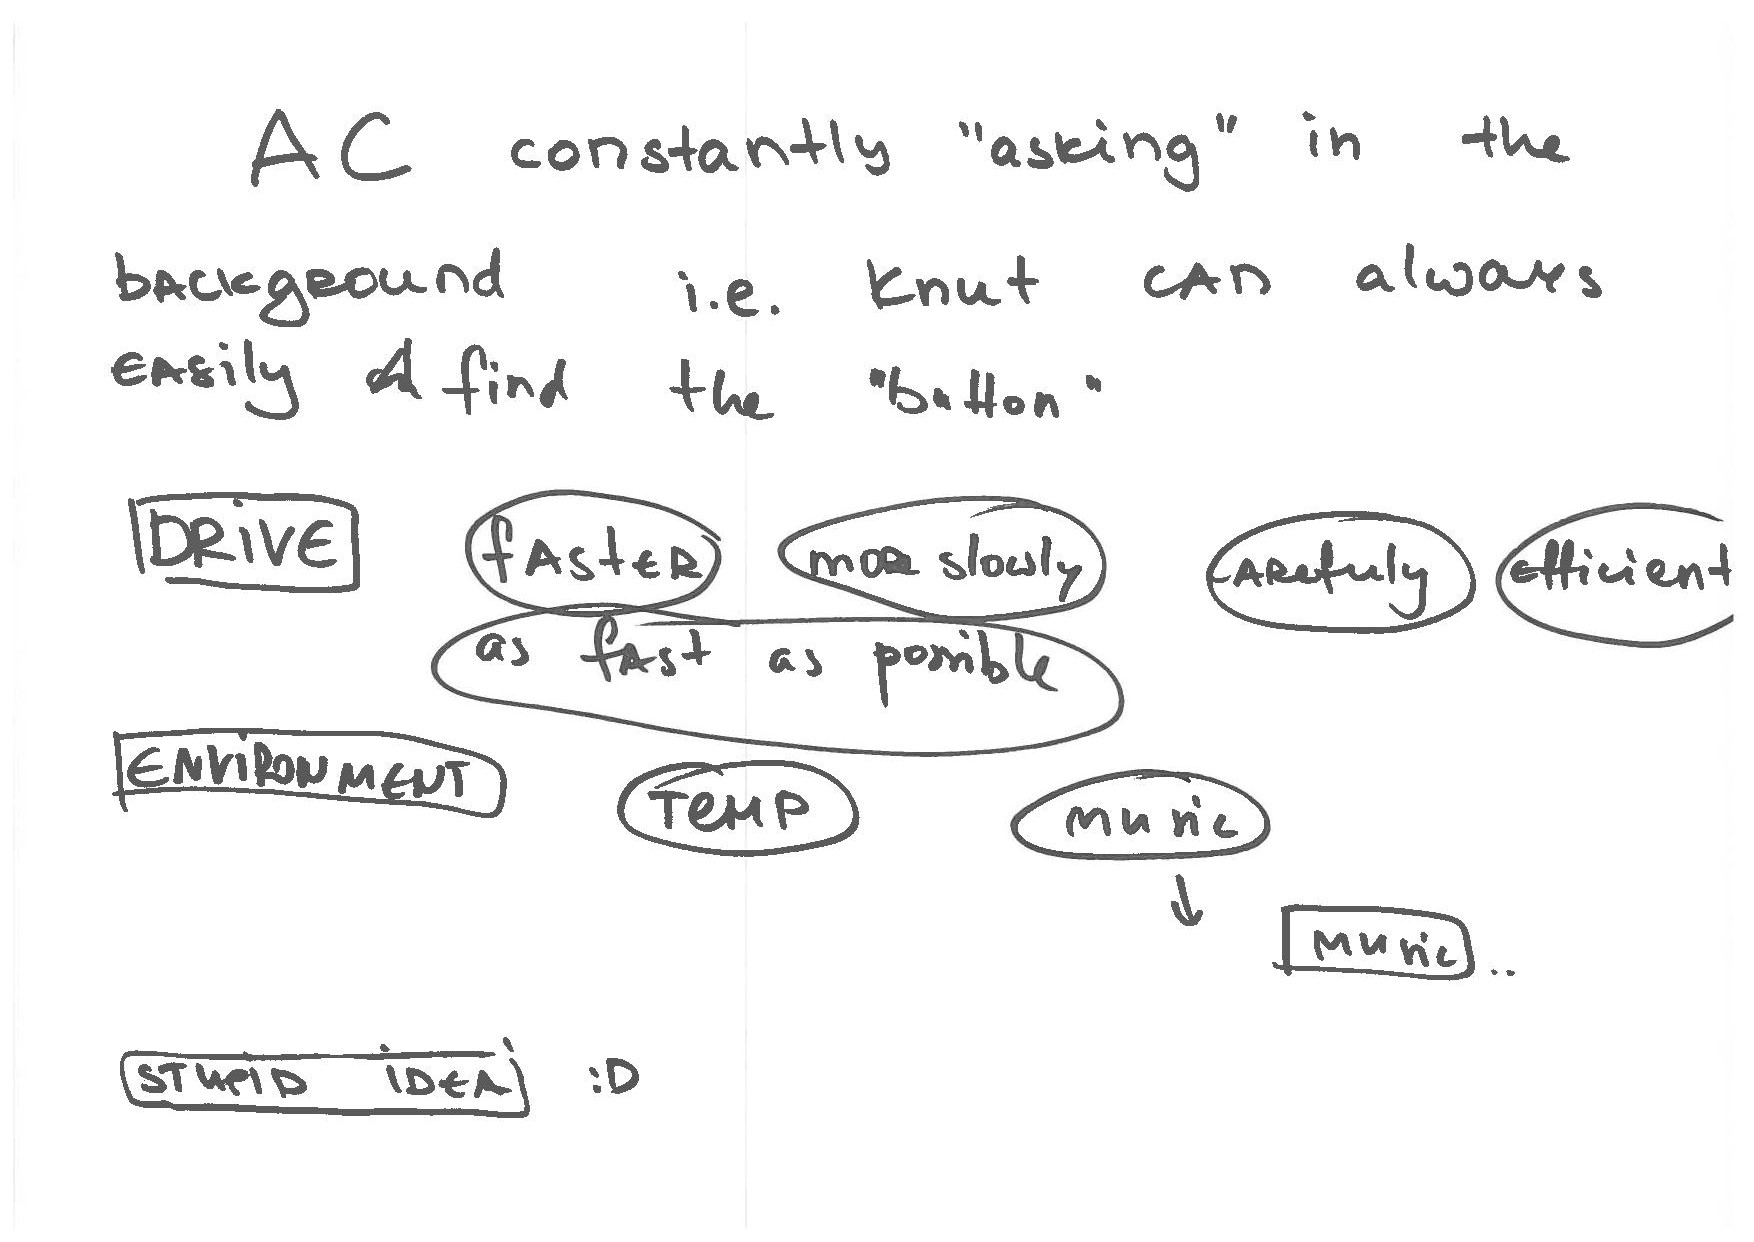 AC constantly "asking" in the
background i.e. Knut can always
easily find the "button"
DRIVE faster more slowly carefuly efficient
as fast as possible
ENVIRONMENT TEMP music
music..
STUPID IDEA :D